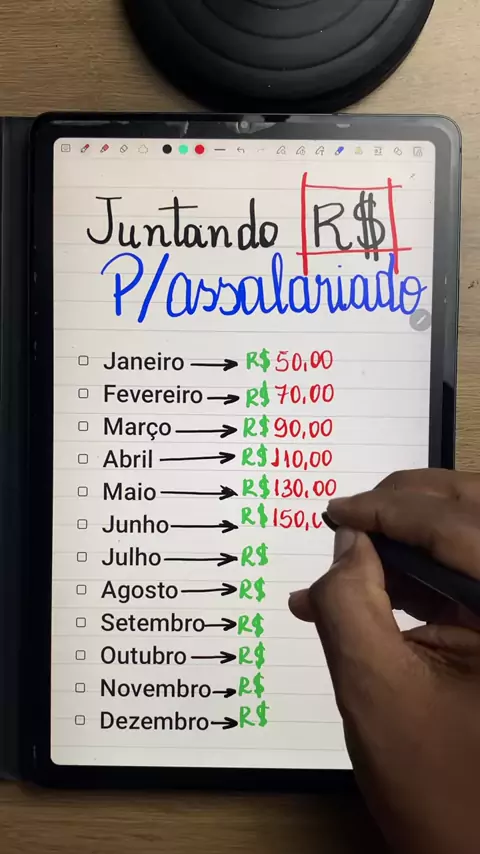 Juntando R$
P/assalariado
Janeiro → R$ 50,00
Fevereiro → R$ 70,00
Março → R$ 90,00
Abril → R$ 110,00
Maio → R$ 130,00
Junho → R$ 150,0
Julho → R$
Agosto → R$
Setembro → R$
Outubro → R$
Novembro → R$
Dezembro → R$